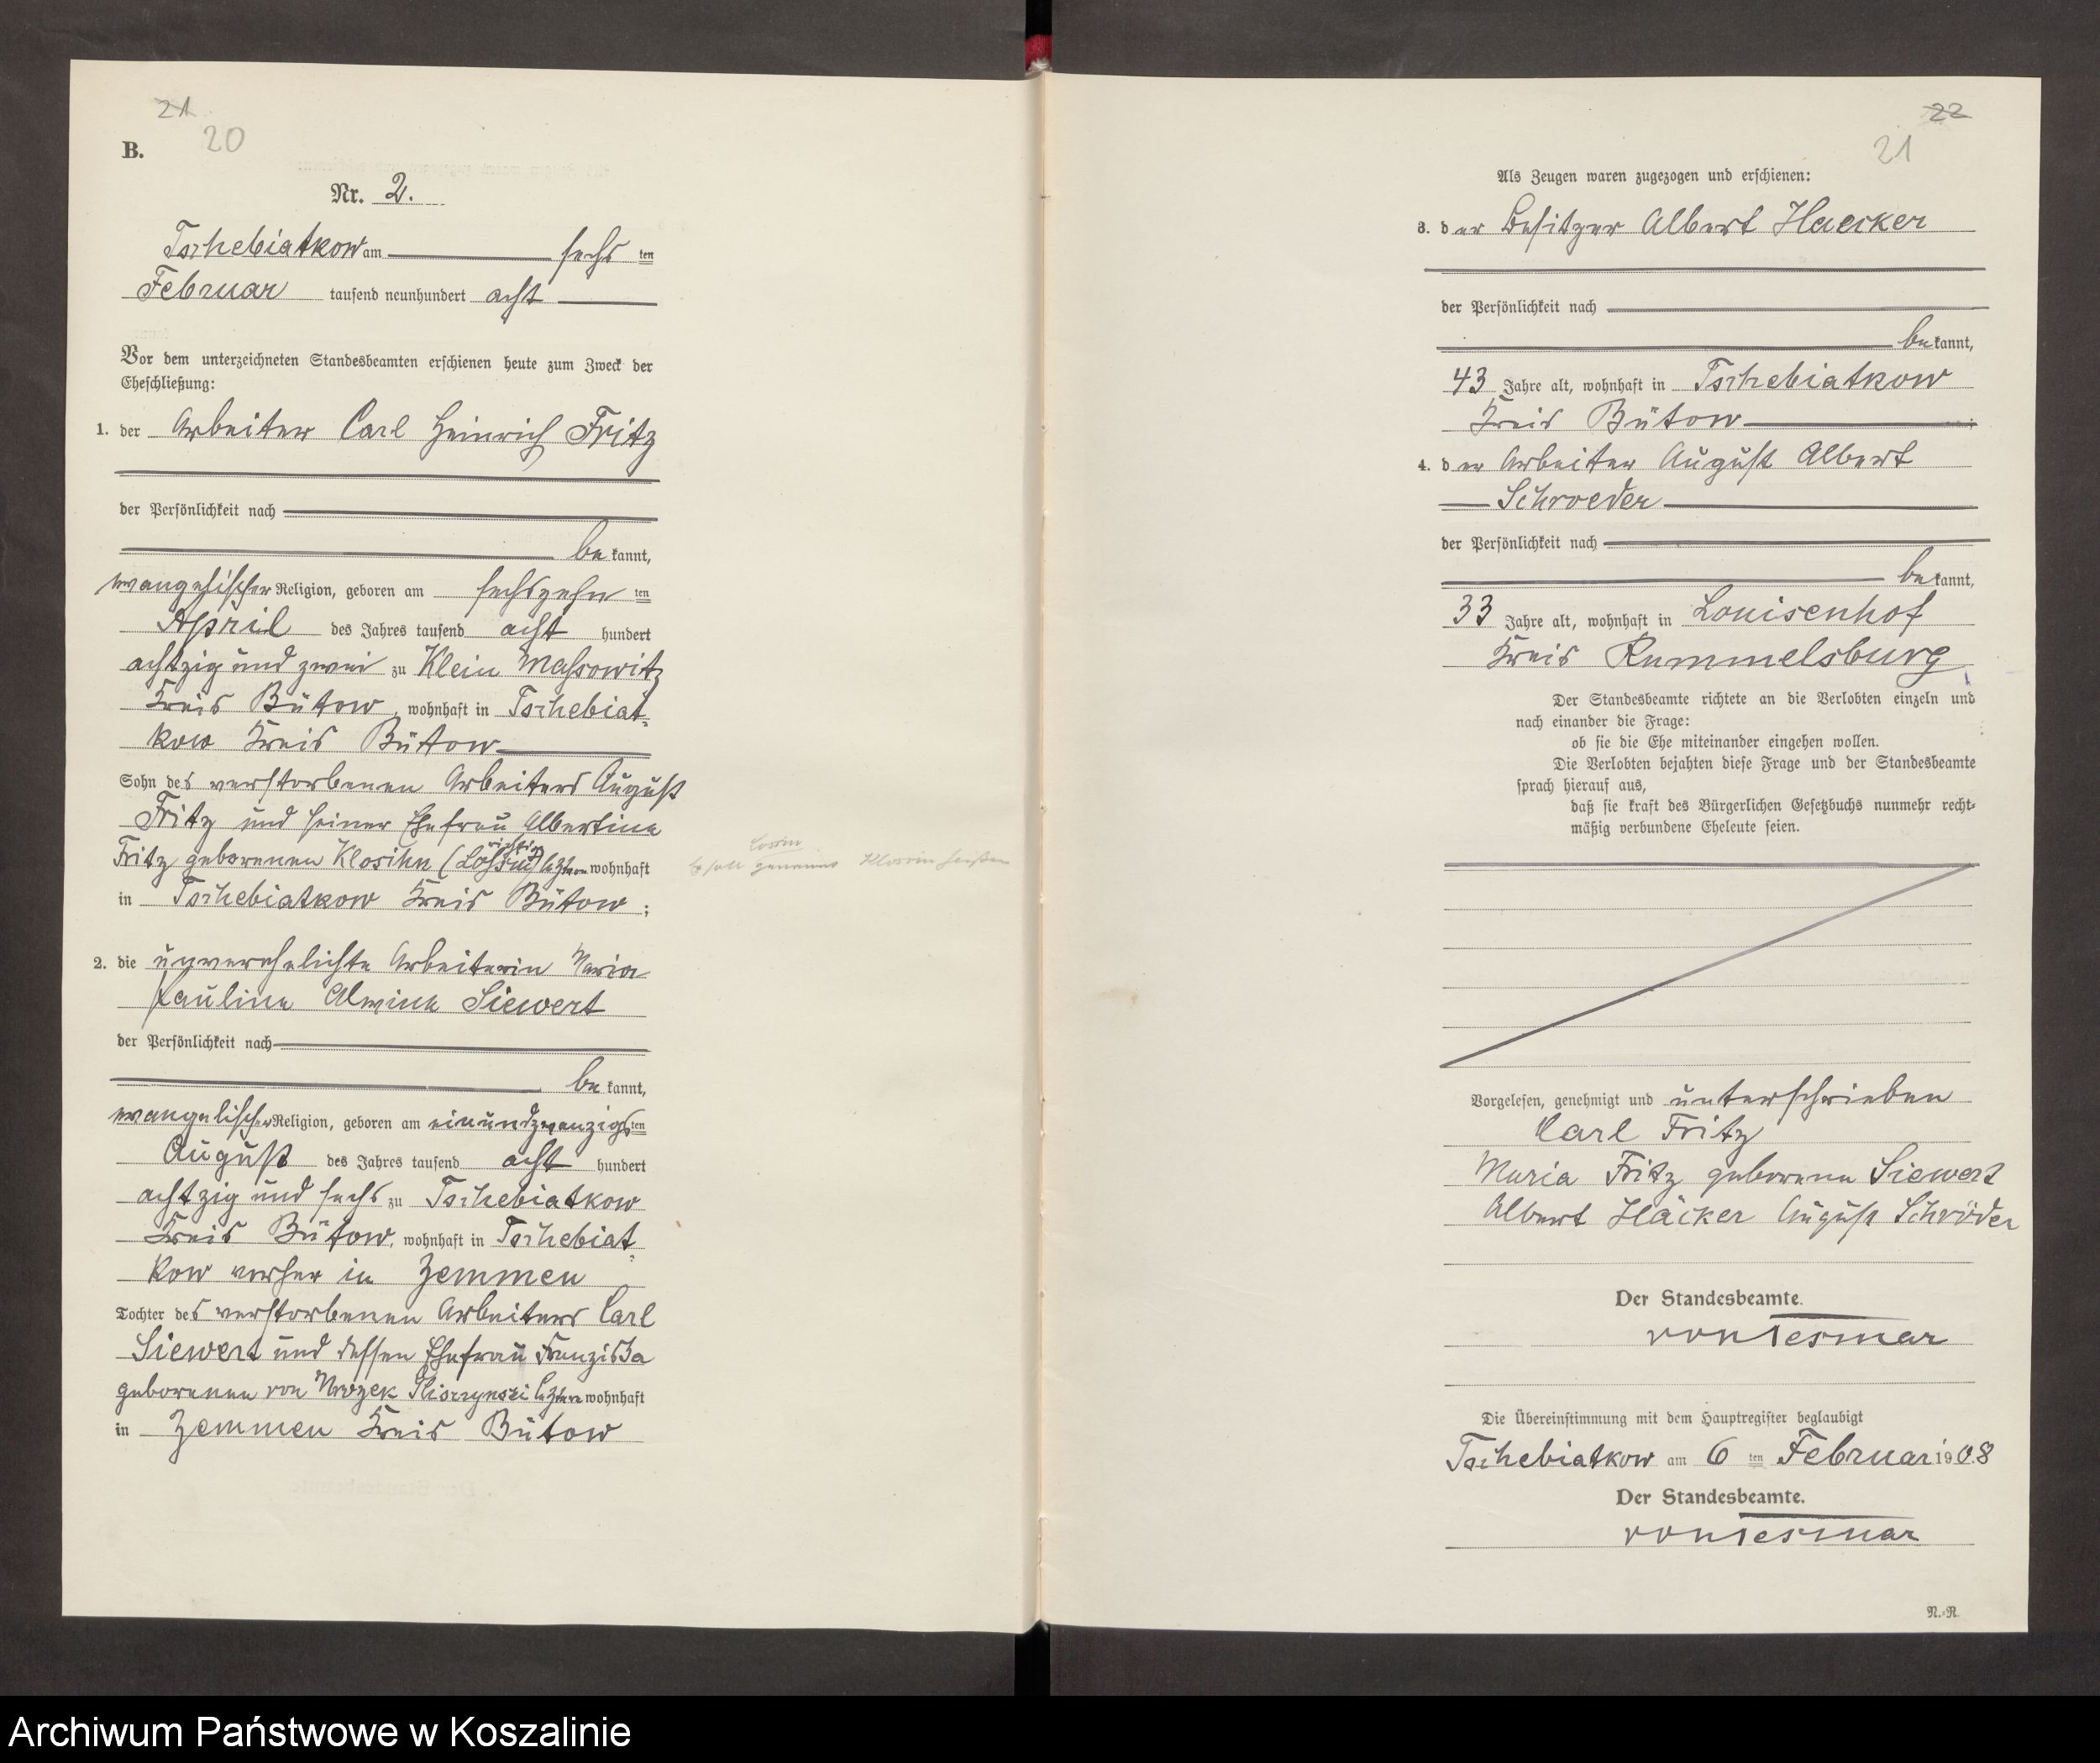 21
20
B.
Nr. 2.
Tschebiatkow am sechs ten
Februar tausend neunhundert acht
Vor dem unterzeichneten Standesbeamten erschienen heute zum Zweck der
Eheschließung:
1. der Arbeiter Carl Heinrich Fritz
der Persönlichkeit nach
be kannt,
evangelischer Religion, geboren am sechszehn ten
April des Jahres tausend acht hundert
achtzig und zwei zu Klein Massowitz
Kreis Bütow, wohnhaft in Tschebiat-
kow Kreis Bütow
Sohn des verstorbenen Arbeiters August
Fritz und seiner Ehefrau Albertine
richtig
Fritz geborenen Klosihn (Lossin) wohnhaft
Lossin
soll genannt Klossin heißen
in Tschebiatkow Kreis Bütow;
2. die unverehelichte Arbeiterin Maria
Pauline Alwine Siewert
der Persönlichkeit nach
be kannt,
evangelischer Religion, geboren am einundzwanzigs ten
August des Jahres tausend acht hundert
achtzig und sechs zu Tschebiatkow
Kreis Bütow, wohnhaft in Tschebiat-
kow vorher in Zemmen
Tochter des verstorbenen Arbeiters Carl
Siewert und dessen Ehefrau Franziska
geborenen von Mrozek wohnhaft
in Zemmen Kreis Bütow
22
21
Als Zeugen waren zugezogen und erschienen:
3. der Besitzer Albert Haecker
der Persönlichkeit nach
be kannt,
43 Jahre alt, wohnhaft in Tschebiatkow
Kreis Bütow;
4. der Arbeiter August Albert
Schroeder
der Persönlichkeit nach
be kannt,
33 Jahre alt, wohnhaft in Louisenhof
Kreis Rummelsburg
Der Standesbeamte richtete an die Verlobten einzeln und
nach einander die Frage:
ob sie die Ehe miteinander eingehen wollen.
Die Verlobten bejahten diese Frage und der Standesbeamte
sprach hierauf aus,
daß sie kraft des Bürgerlichen Gesetzbuchs nunmehr recht-
mäßig verbundene Eheleute seien.
Vorgelesen, genehmigt und unterschrieben
Carl Fritz
Maria Fritz geborene Siewert
Albert Häcker August Schröder
Der Standesbeamte.
von Tesmar
Die Übereinstimmung mit dem Hauptregister beglaubigt
Tschebiatkow am 6 ten Februar 1908
Der Standesbeamte.
von Tesmar
N.-N.
Archiwum Państwowe w Koszalinie